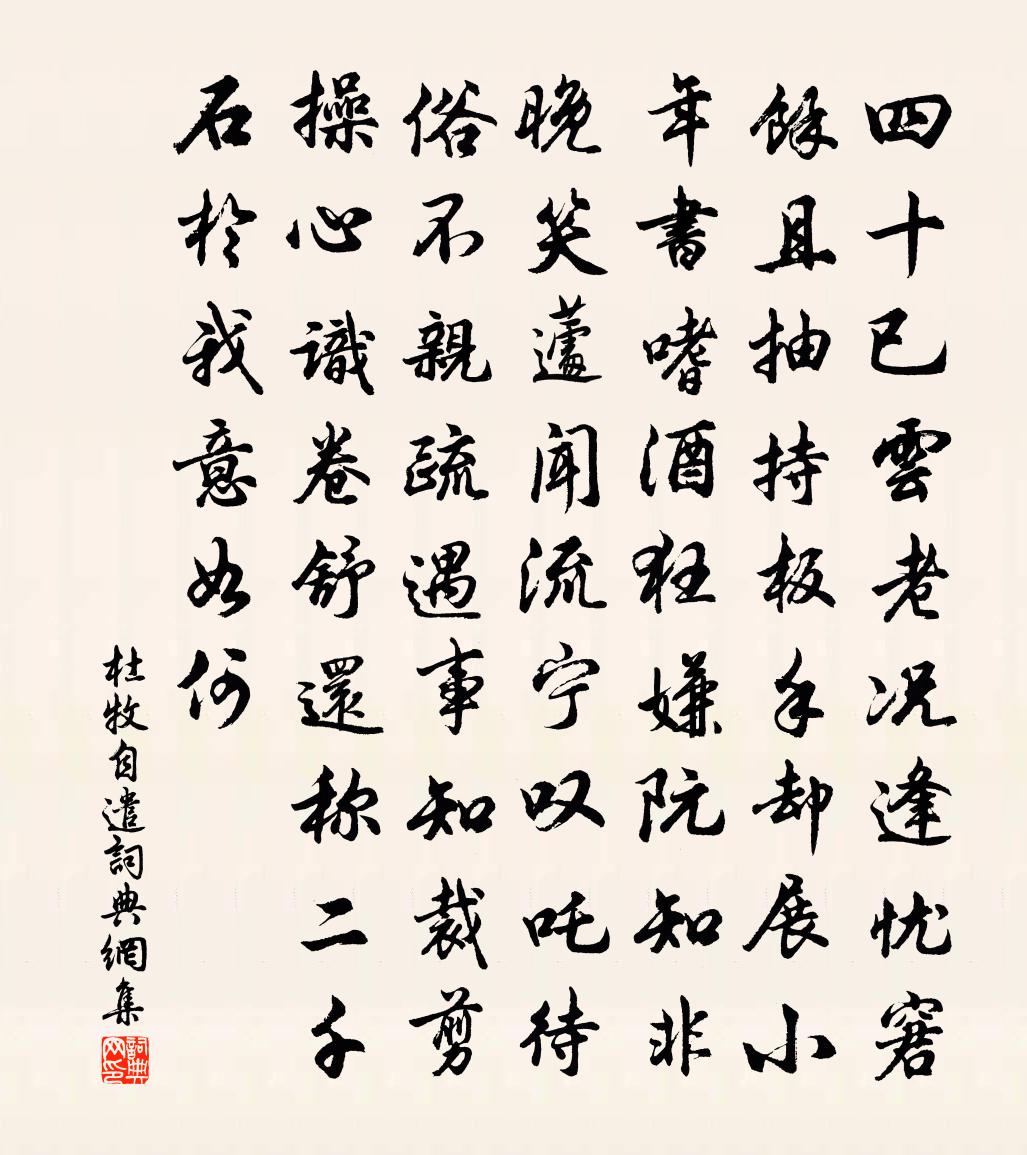 四十已雲老况逢忧窘
餘且抽持板手却展小
年書嗜酒狂嫌阮知非
晚笑蘧聞流宁叹吒待
俗不親疏遇事知裁剪
操心識卷舒還称二千
石於我意如何
杜牧自遣詞典網集
詞典网印